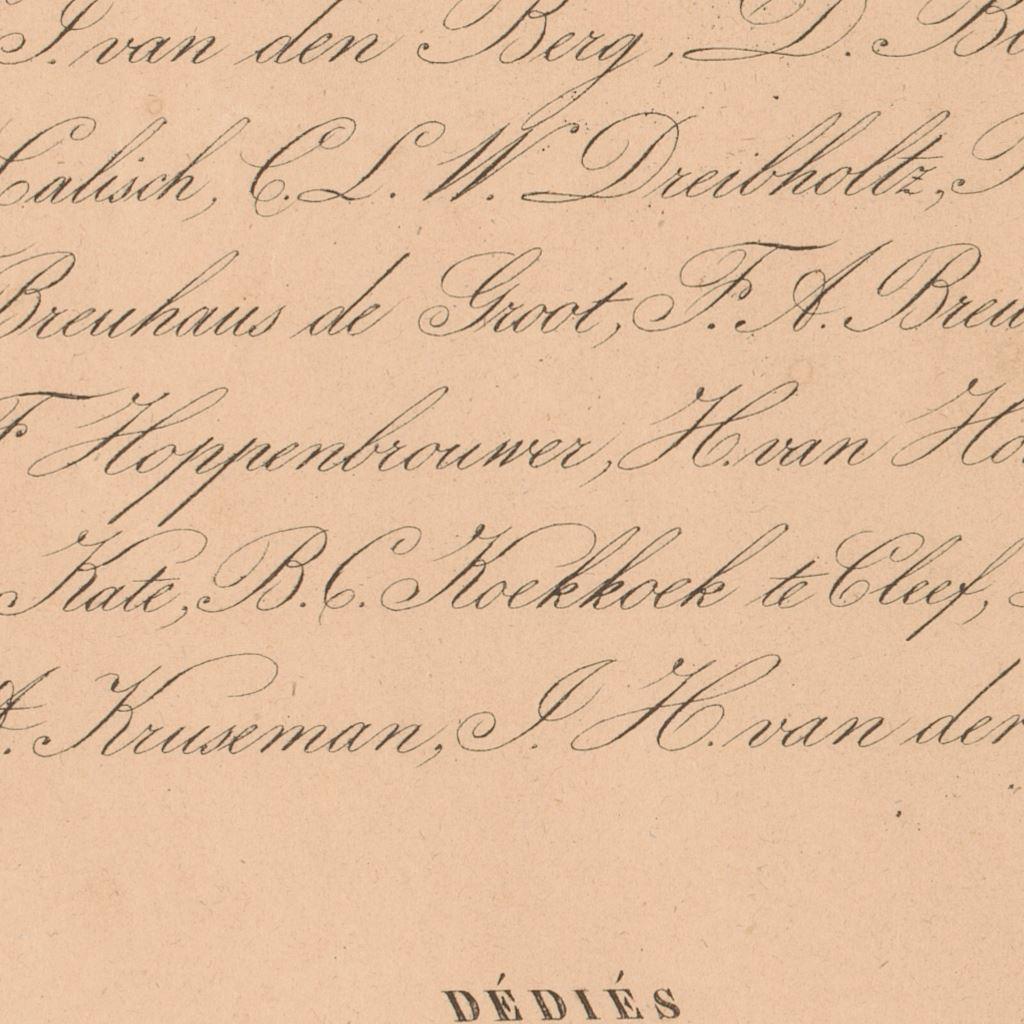 I. van den Berg, D. Bo
Calisch, C. L. W. Dreibholtz,
Breuhaus de Groot, F. A. Breu
F Hoppenbrouwer, H. van Ho
Kate, B. C. Koekkoek te Cleef,
A. Kruseman, I. H. van der
DÉDIÉS